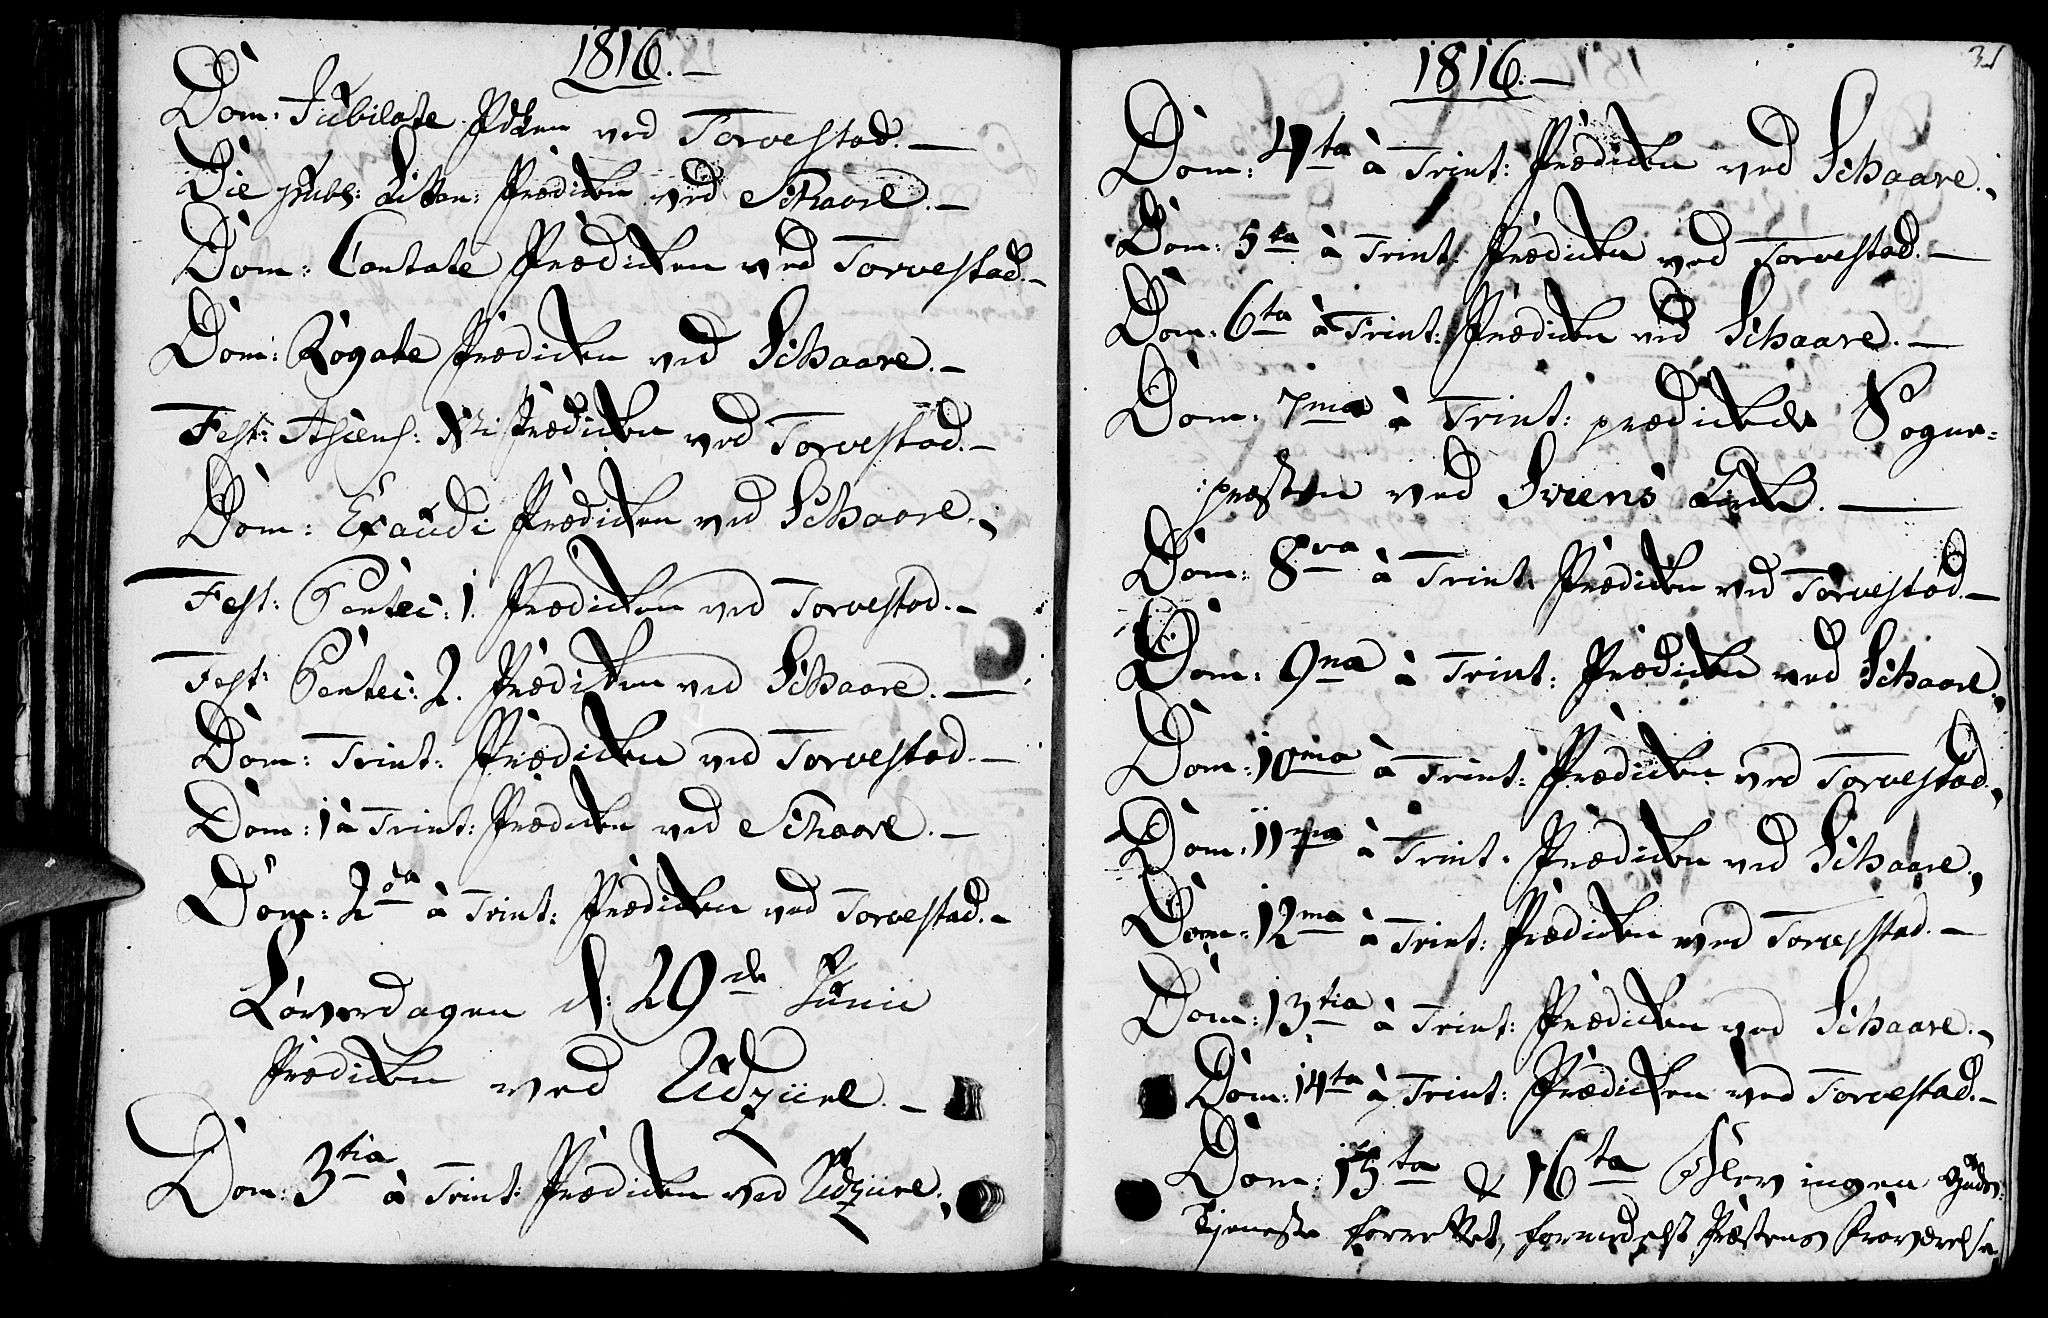 1816.
Dom: Jubilate Prdken ved Torvestad.
Die publ: Litan: Prædiken ved Schaare.
Dom: Cantate Prædicken ved Torvestad.
Dom: Rogate Prædicken ved Schaare.
Fest: Ascens: Xti Prædicken ved Torvestad.
Dom: Exaudi Prædicken ved Schaare.
Fest: Pentec: 1. Prædicken ved Torvestad.
Fest: Pentec: 2. Prædiken ved Schaare.
Dom: Trint: Prædicken ved Torvestad.
Dom: 1 à Trint: Prædicken ved Schaare.
Dom: 2da à Trint: Prædicken ved Torvestad.
Löverdagen d: 29de Junii
Prædicken ved Udzüre.
Dom: 3tia à Trint: Prædicken ved Udzüre.
1816.
31
Dom: 4ta à Trint: Prædicken ved Schaare.
Dom: 5ta à Trint: Prædicken ved Torvestad.
Dom: 6ta à Trint: Prædicken ved Schaare.
Dom: 7ma à Trint: prædickede Sogne-
præsten ved Svens Kirke.
Dom: 8va à Trint: Prædicken ved Torvestad.
Dom: 9na à Trint: Prædicken ved Schaare.
Dom: 10ma à Trint: Prædicken ved Torvestad.
Dom: 11ma à Trint: Prædicken ved Schaare.
Dom: 12ma à Trint: Prædicken ved Torvestad.
Dom: 13tia à Trint: Prædicken ved Schaare.
Dom: 14ta à Trint: Prædicken ved Torvestad.
Dom: 15ta & 16ta Blev ingen Guds-
Tjeneste forrettet, formedelst Præstens Fraværelse